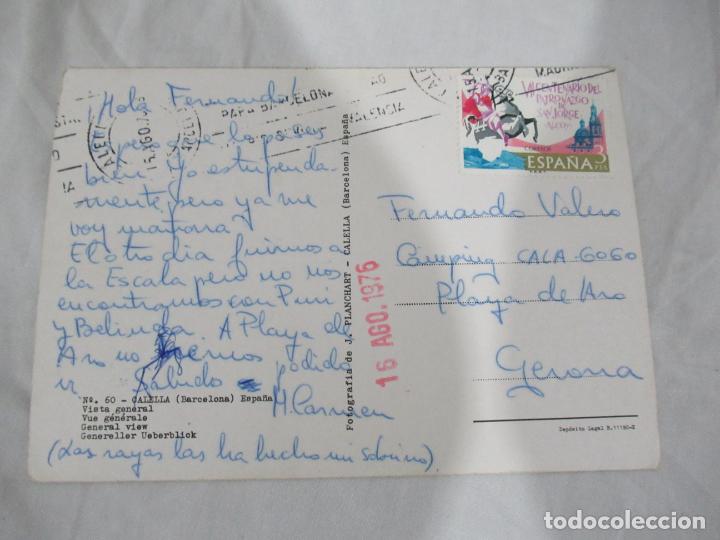 ¡Hola Fernando!
Espero que lo pases
bien. Yo estupenda-
mente, pero ya me
voy mañana.
El otro dia fuimos a
la Escala pero no nos
encontramos con Puri
y Belinda. A Playa de
Aro no hemos podido
ir Saludo
M. Carmen
(Las rayas las ha hecho mi sobrino)
Nº. 60 - CALELLA (Barcelona) España
Vista general
Vue générale
General view
Genereller Ueberblick
Fotografía de J. PLANCHART - CALELLA (Barcelona) España
16 AGO. 1976
BARCELONA
VALENCIA
VII CENTENARIO DEL
PATRONAZGO
DE
SAN JORGE
ALCOY
CORREOS
ESPAÑA 3
PTS
Fernando Valero
Camping CALA-GOGO
Playa de Aro
Gerona
Depósito Legal B.11190-X
todocoleccion
todocoleccion.net